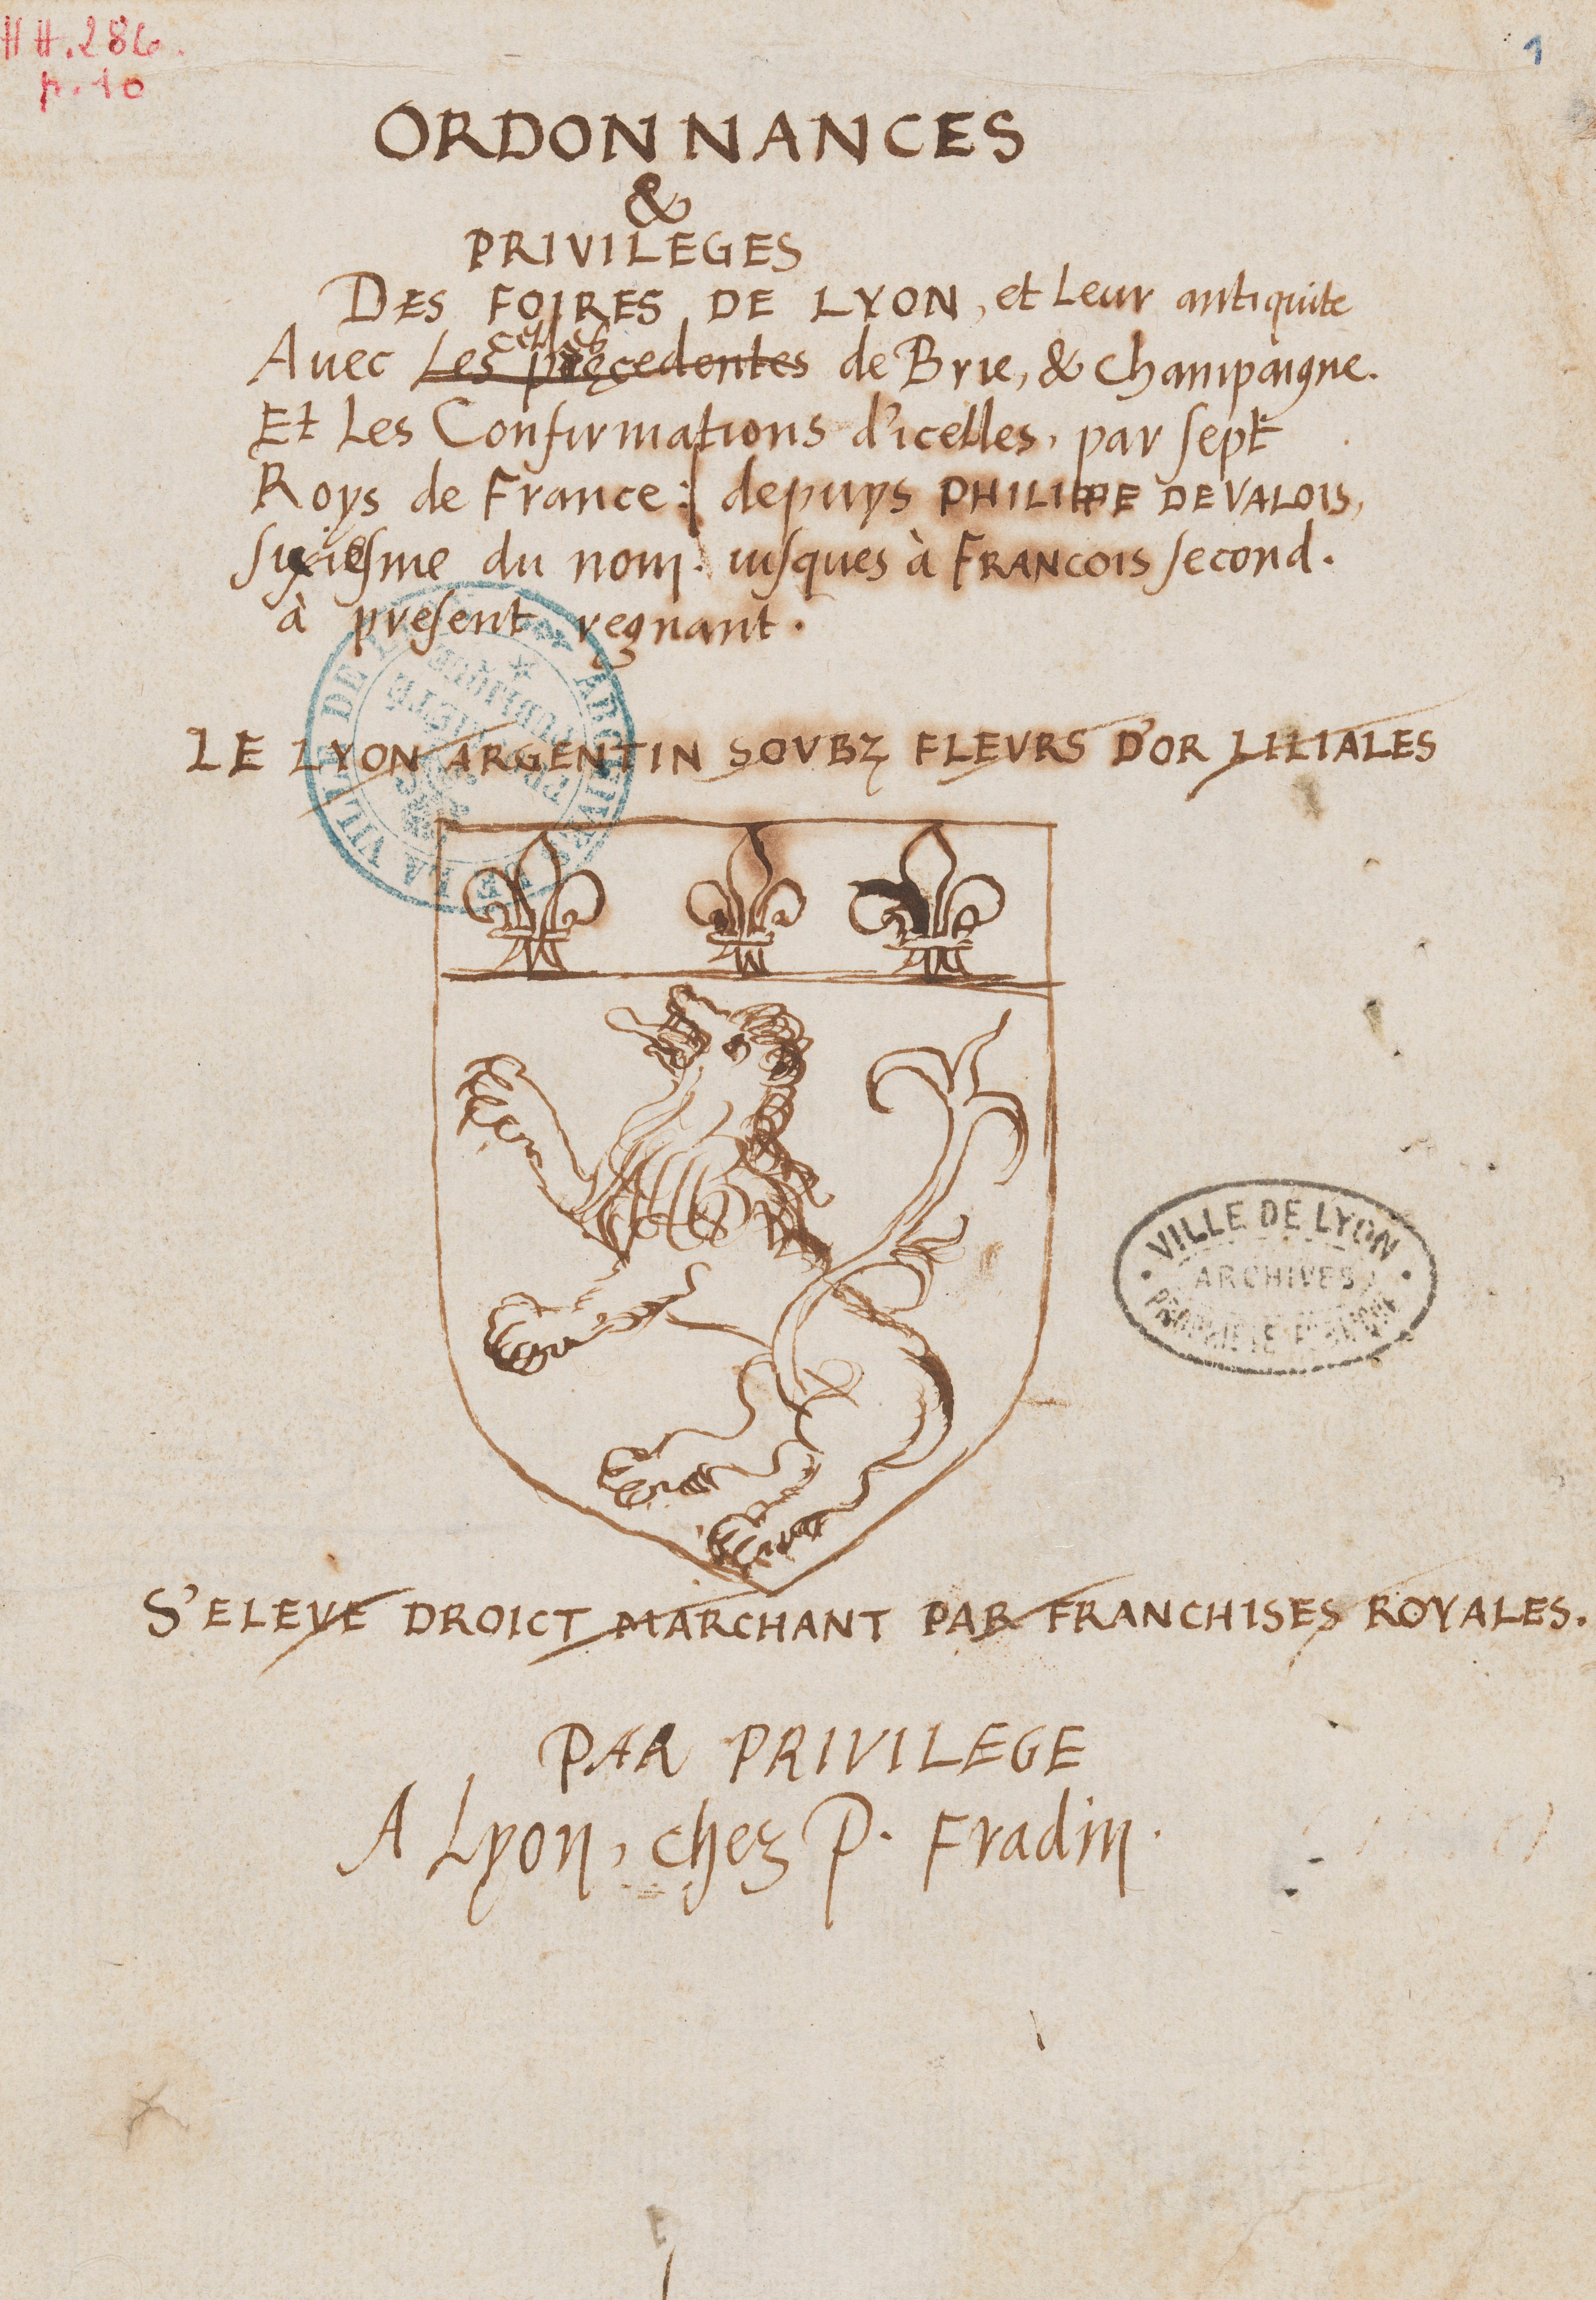 HH.286.
p.10
1
ORDONNANCES
&
PRIVILEGES
DES FOIRES DE LYON, et Leur antiquite
celles
Auec Les precedentes de Brie, & Champaigne.
Et Les Confirmations d'icelles, par ſept
Roys de France: depuys PHILIPPE DE VALOIS,
ſixieſme du nom. iuſques à FRANCOIS ſecond.
à preſent regnant.
LE LYON ARGENTIN SOVBZ FLEVRS D'OR LILIALES
ARCHIVES DE LA VILLE DE
PROPRIÉTÉ
PUBLIQUE
VILLE DE LYON
ARCHIVES
PROPRIETE PUBLIQUE
S'ELEVE DROICT MARCHANT PAR FRANCHISES ROYALES.
PAR PRIVILEGE
A Lyon, chez P. Fradin.